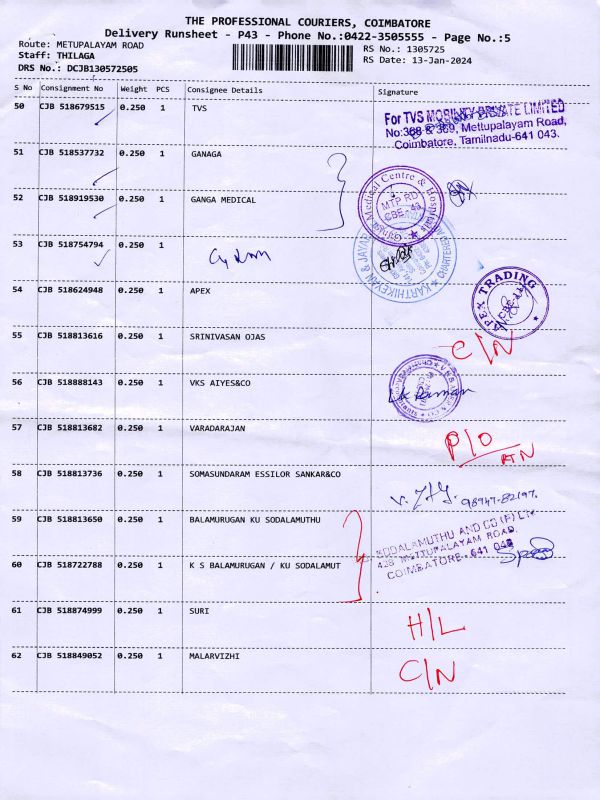 THE PROFESSIONAL COURIERS, COIMBATORE
Delivery Runsheet - P43 - Phone No.:0422-3505555 - Page No.:5
Route: METUPALAYAM ROAD
RS No.: 1305725
Staff: THILAGA
RS Date: 13-Jan-2024
DRS No.: DCJB130572505
S No Consignment No Weight PCS Consignee Details Signature
50 CJB 518679515 0.250 1 TVS
For TVS MOBILITY PRIVATE LIMITED
No:368 & 369, Mettupalayam Road,
Coimbatore, Tamilnadu-641 043.
51 CJB 518537732 0.250 1 GANAGA
52 CJB 518919530 0.250 1 GANGA MEDICAL
Ganga Medical Centre & Hospitals
MTP RD
CBE-43
53 CJB 518754794 0.250 1
KARTHIKEYAN & JAYA
CHARTERED
54 CJB 518624948 0.250 1 APEX
APEX TRADING
CBE-43
55 CJB 518813616 0.250 1 SRINIVASAN OJAS
C/N
56 CJB 518888143 0.250 1 VKS AIYES&CO
57 CJB 518813682 0.250 1 VARADARAJAN
P/O
RTN
58 CJB 518813736 0.250 1 SOMASUNDARAM ESSILOR SANKAR&CO
98947-82197.
59 CJB 518813650 0.250 1 BALAMURUGAN KU SODALAMUTHU
SODALAMUTHU AND CO (P) LTD
438 METTUPALAYAM ROAD
COIMBATORE - 641 043
60 CJB 518722788 0.250 1 K S BALAMURUGAN / KU SODALAMUT
61 CJB 518874999 0.250 1 SURI
H/L
62 CJB 518849052 0.250 1 MALARVIZHI
C/N